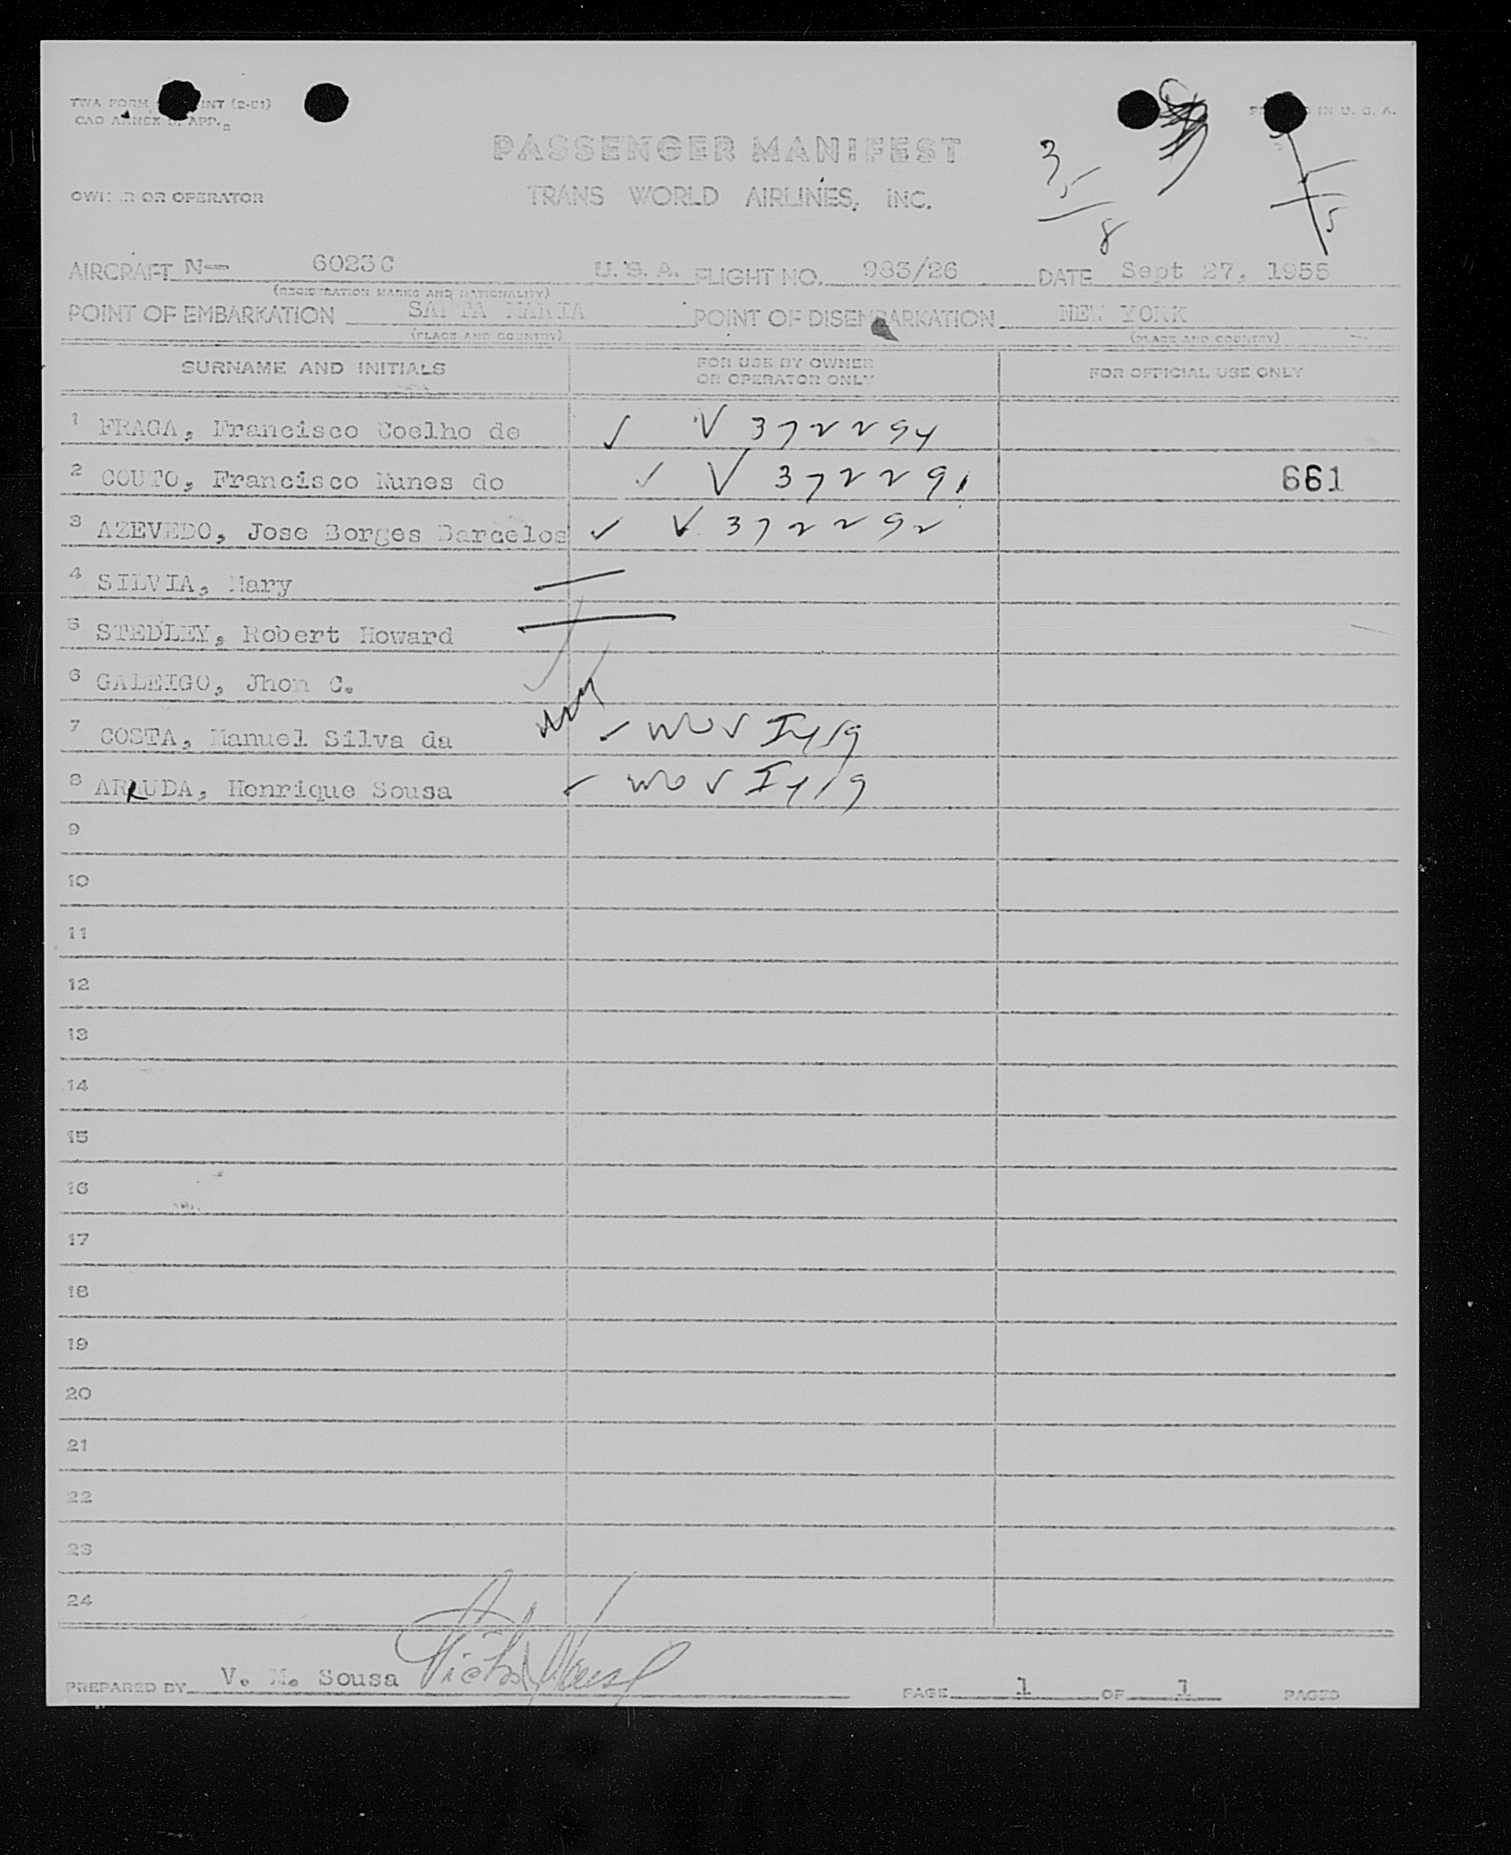 TWA FORM INT (2-51) PRINTED IN U. S. A.
CAO ANNEX 9, APP.
PASSENGER MANIFEST
OWNER OR OPERATOR TRANS WORLD AIRLINES, INC.
3
5
8
5
5
AIRCRAFT N-- 6023C U.S.A. FLIGHT NO. 983/26 DATE Sept 27, 1955
(REGISTRATION MARKS AND NATIONALITY)
POINT OF EMBARKATION SANTA MARIA POINT OF DISEMBARKATION NEW YORK
(PLACE AND COUNTRY) (PLACE AND COUNTRY)
SURNAME AND INITIALS FOR USE BY OWNER OR OPERATOR ONLY FOR OFFICIAL USE ONLY
1 FRAGA, Francisco Coelho de V 372294
2 COUTO, Francisco Nunes do V 372291 661
3 AZEVEDO, Jose Borges Barcelos V 372292
4 SILVIA, Mary
5 STEDLEY, Robert Howard
6 GALEIGO, Jhon C.
7 COSTA, Manuel Silva da
8 ARRUDA, Henrique Sousa
9
10
11
12
13
14
15
16
17
18
19
20
21
22
23
24
PREPARED BY V. M. Sousa PAGE 1 OF 1 PAGES